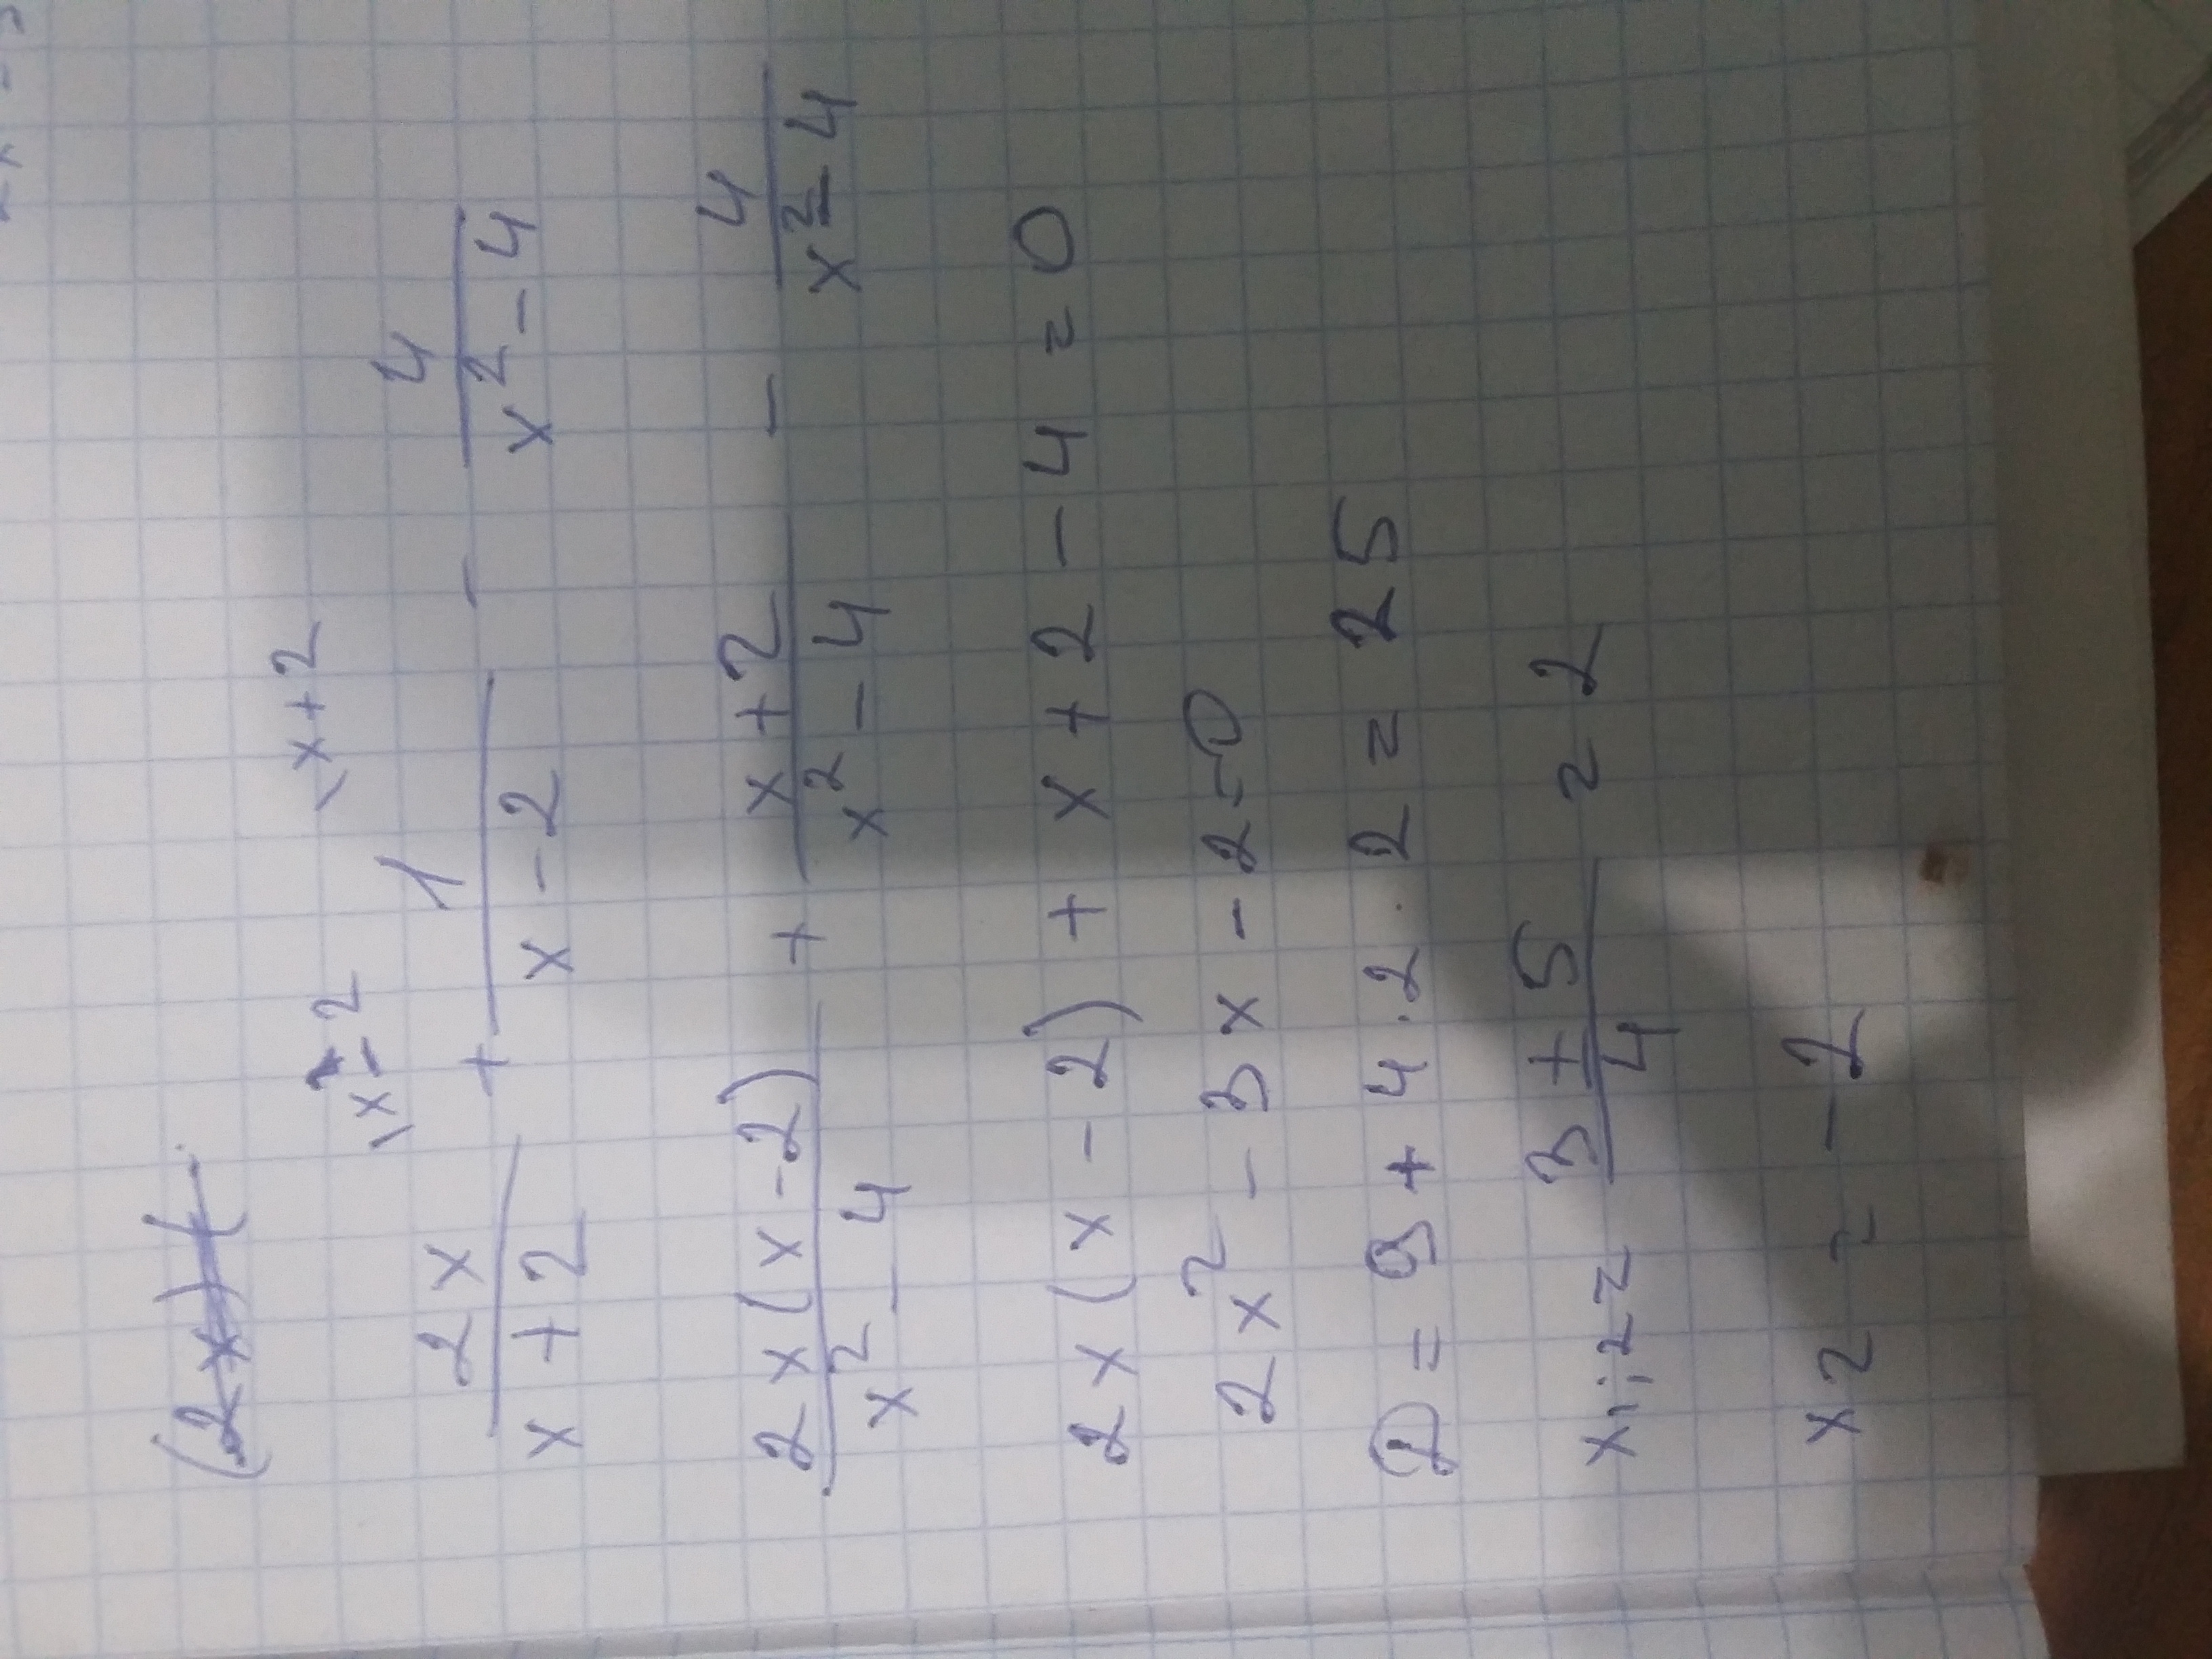 (2x)(
\x-2 \x+2
2x/x+2 + 1/x-2 - 4/x²-4
2x(x-2)/x²-4 + x+2/x²-4 - 4/x²-4
2x(x-2) + x+2-4=0
2x²-3x-2=0
D=9+4.2.2=25
x1;2= 3±5/4 = 2
x2=-2